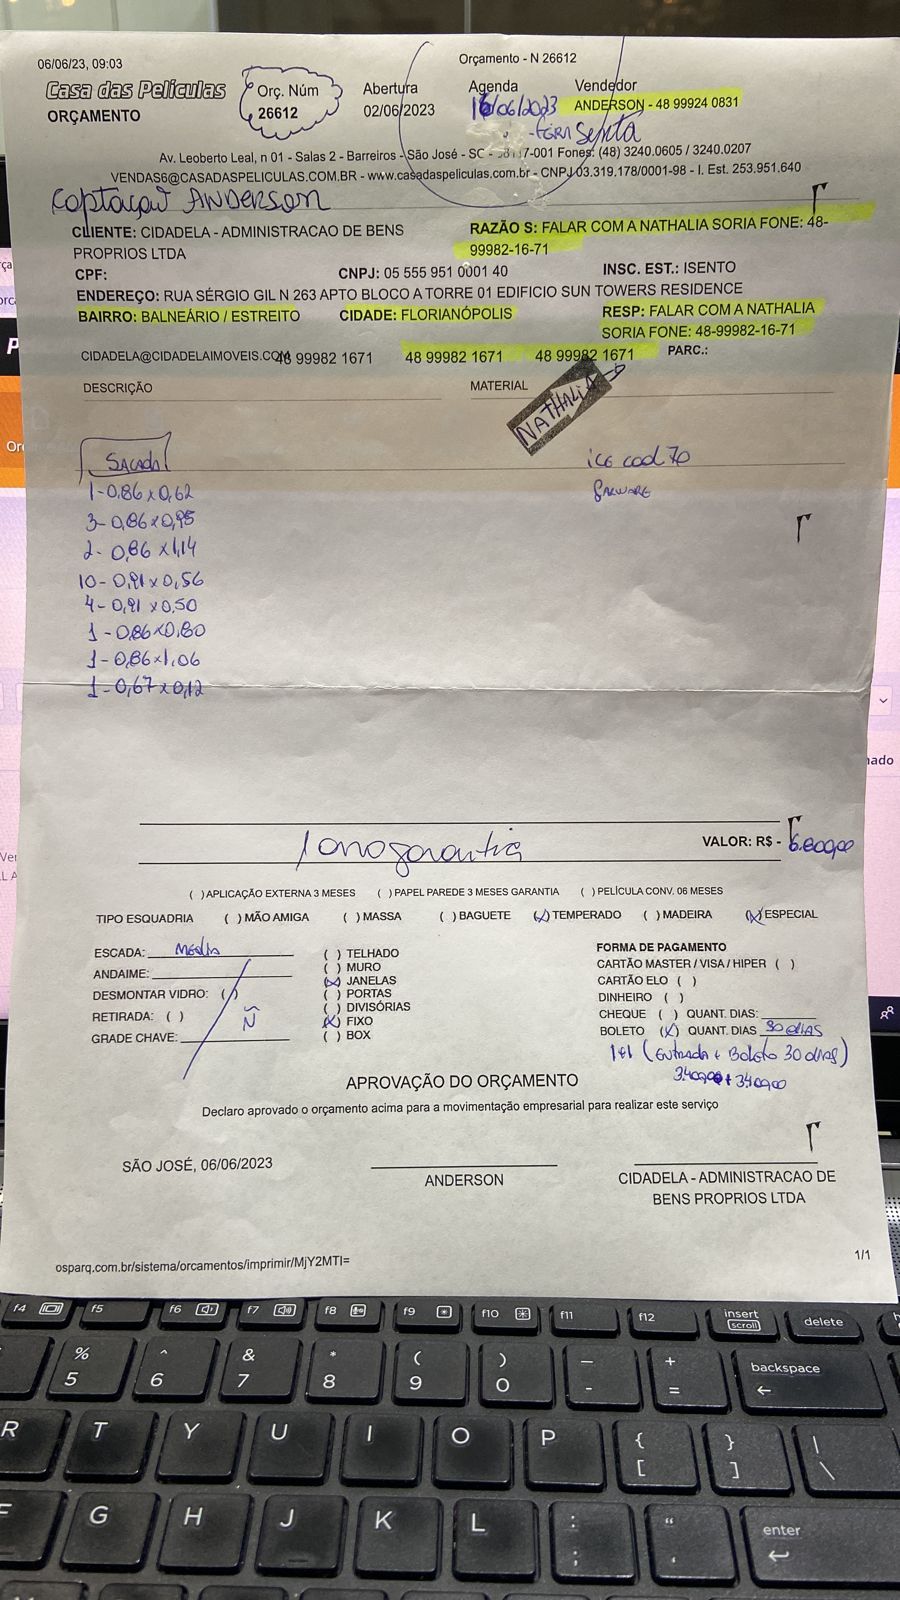 06/06/23, 09:03
Orçamento - N 26612
Casa das Películas
ORÇAMENTO
Orç. Núm
26612
Abertura
02/06/2023
Agenda
16/06/2023
-feira sexta
Vendedor
ANDERSON - 48 99924 0831
Av. Leoberto Leal, n 01 - Salas 2 - Barreiros - São José - SC - 117-001 Fones: (48) 3240.0605 / 3240.0207
VENDAS6@CASADASPELICULAS.COM.BR - www.casadaspeliculas.com.br - CNPJ 03.319.178/0001-98 - I. Est. 253.951.640
Captação ANDERSON
CLIENTE: CIDADELA - ADMINISTRACAO DE BENS PROPRIOS LTDA
RAZÃO S: FALAR COM A NATHALIA SORIA FONE: 48-
99982-16-71
CPF:
CNPJ: 05 555 951 0001 40
INSC. EST.: ISENTO
ENDEREÇO: RUA SÉRGIO GIL N 263 APTO BLOCO A TORRE 01 EDIFICIO SUN TOWERS RESIDENCE
BAIRRO: BALNEÁRIO / ESTREITO
CIDADE: FLORIANÓPOLIS
RESP: FALAR COM A NATHALIA
SORIA FONE: 48-99982-16-71
CIDADELA@CIDADELAIMOVEIS.COM 48 99982 1671
48 99982 1671
48 99982 1671
PARC.:
NATHALIA
DESCRIÇÃO
MATERIAL
SACADA
ice cool 70
GARWARE
1-0,86x0,62
3-0,86x0,95
2-0,86x1,14
10-0,91x0,56
4-0,91x0,50
1-0,86x0,80
1-0,86x1,06
1-0,67x0,12
1 ano garantia
VALOR: R$ - 6.800,00
( )APLICAÇÃO EXTERNA 3 MESES ( )PAPEL PAREDE 3 MESES GARANTIA ( )PELÍCULA CONV. 06 MESES
TIPO ESQUADRIA ( ) MÃO AMIGA ( ) MASSA ( ) BAGUETE (X)TEMPERADO ( ) MADEIRA (X)ESPECIAL
ESCADA: Média
ANDAIME:
DESMONTAR VIDRO: ( )
RETIRADA: ( )
GRADE CHAVE:
Ñ
( ) TELHADO
( ) MURO
(X) JANELAS
( ) PORTAS
( ) DIVISÓRIAS
(X) FIXO
( ) BOX
FORMA DE PAGAMENTO
CARTÃO MASTER / VISA / HIPER ( )
CARTÃO ELO ( )
DINHEIRO ( )
CHEQUE ( ) QUANT. DIAS:
BOLETO (X) QUANT. DIAS 30 dias
1+1 (Entrada + Boleto 30 dias)
3.400,00 + 3.400,00
APROVAÇÃO DO ORÇAMENTO
Declaro aprovado o orçamento acima para a movimentação empresarial para realizar este serviço
SÃO JOSÉ, 06/06/2023
ANDERSON
CIDADELA - ADMINISTRACAO DE
BENS PROPRIOS LTDA
osparq.com.br/sistema/orcamentos/imprimir/MjY2MTI=
1/1
f4 f5 f6 f7 f8 f9 f10 f11 f12 insert delete
scroll
% ^ & * ( ) _ + backspace
5 6 7 8 9 0 - =
R T Y U I O P { } |
[ ] \
F G H J K L : " enter
; '